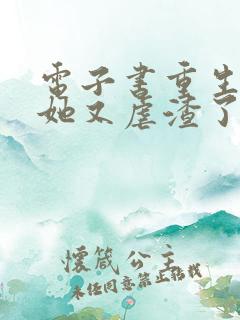 電子書重生
她又虐渣了
懷箴公主
未经同意禁止转载